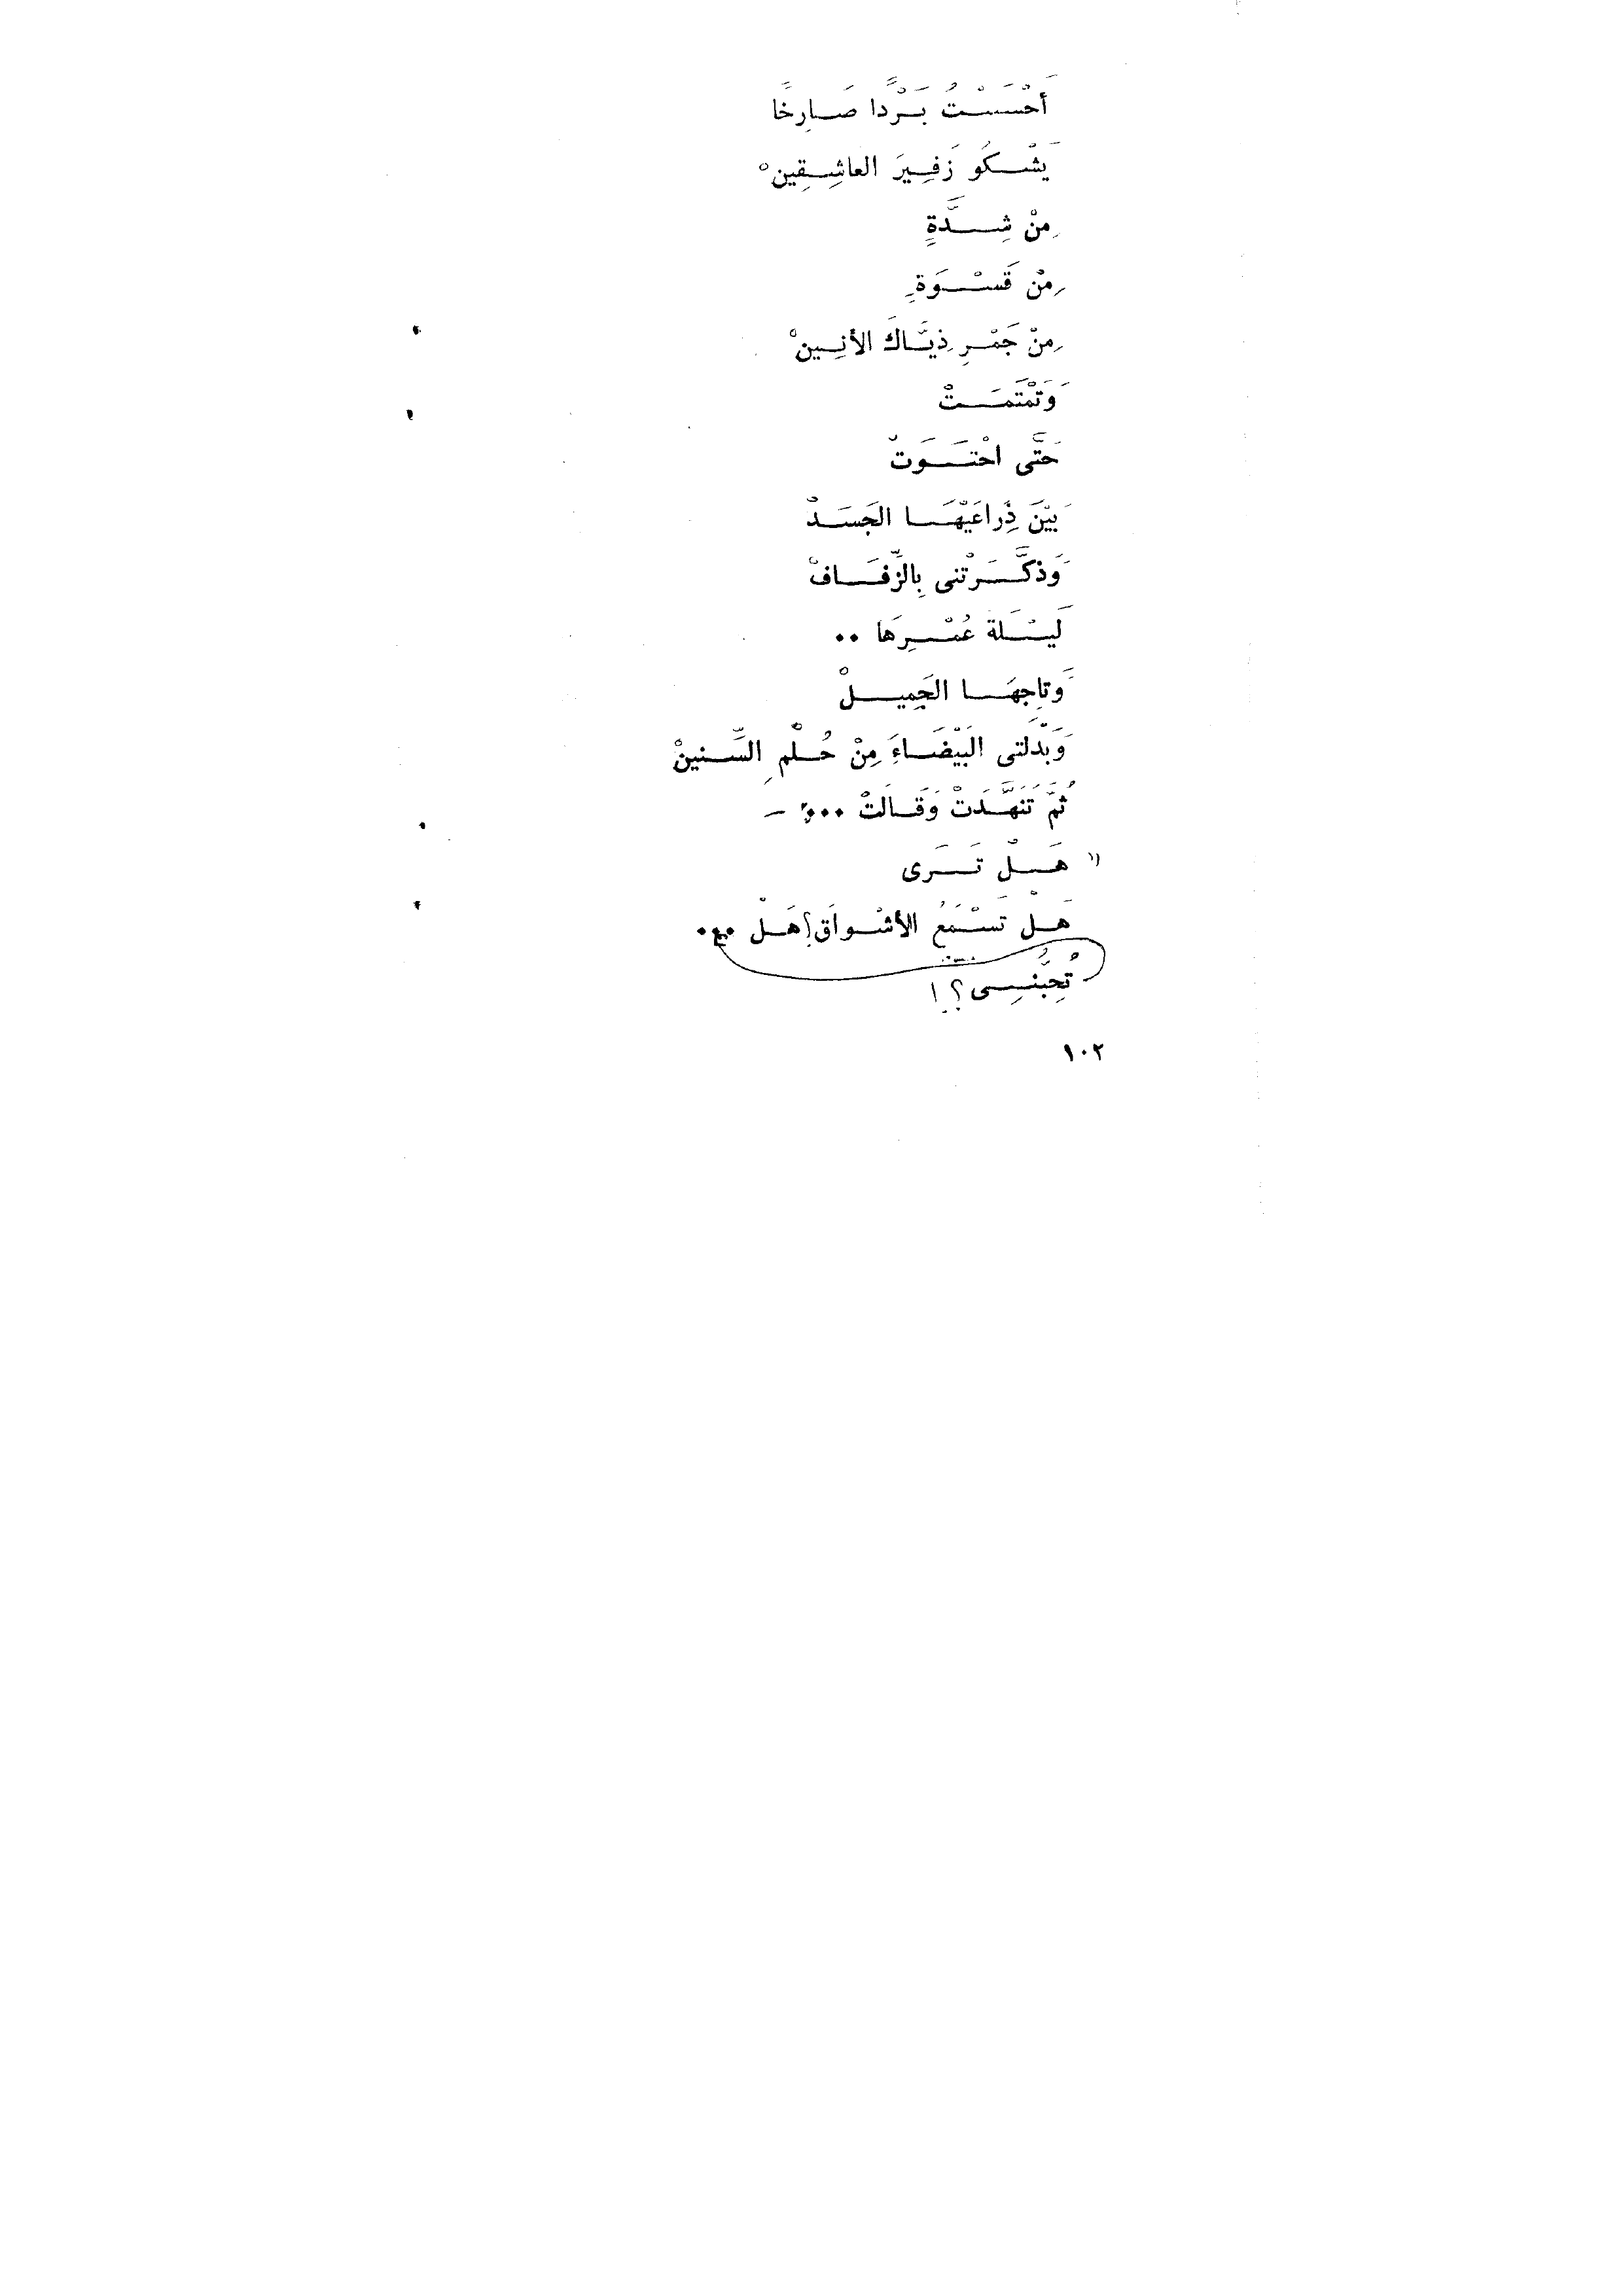 أَحْسَسْتُ بَرْدًا صَارِخًا
يَشْكُو زَفِيرَ العاشِقِينْ
مِنْ شِدَّةٍ
مِنْ قَسْوَةٍ
مِنْ جَمْرِ ذيَّاكَ الأنِينْ
وَتَمْتَمَتْ
حَتَّى احْتَوَتْ
بَيْنَ ذِراعَيْهَا الجَسَدْ
وَذكَّرَتْنى بِالزِّفَافْ
لَيْلَة عُمْرِهَا ..
وَتاجِهَا الجَمِيلْ
وَبَدْلَتى البَيْضَاءَ مِنْ حُلْمِ السِّنينْ
ثُمَّ تَنَهَّدَتْ وَقَالَتْ ... ; —
" هَلْ تَرَى
هَلْ تَسْتَمَعُ الأشْواقَ؟ هَلْ ...
تُحِبُّنِى؟!
١٠٢